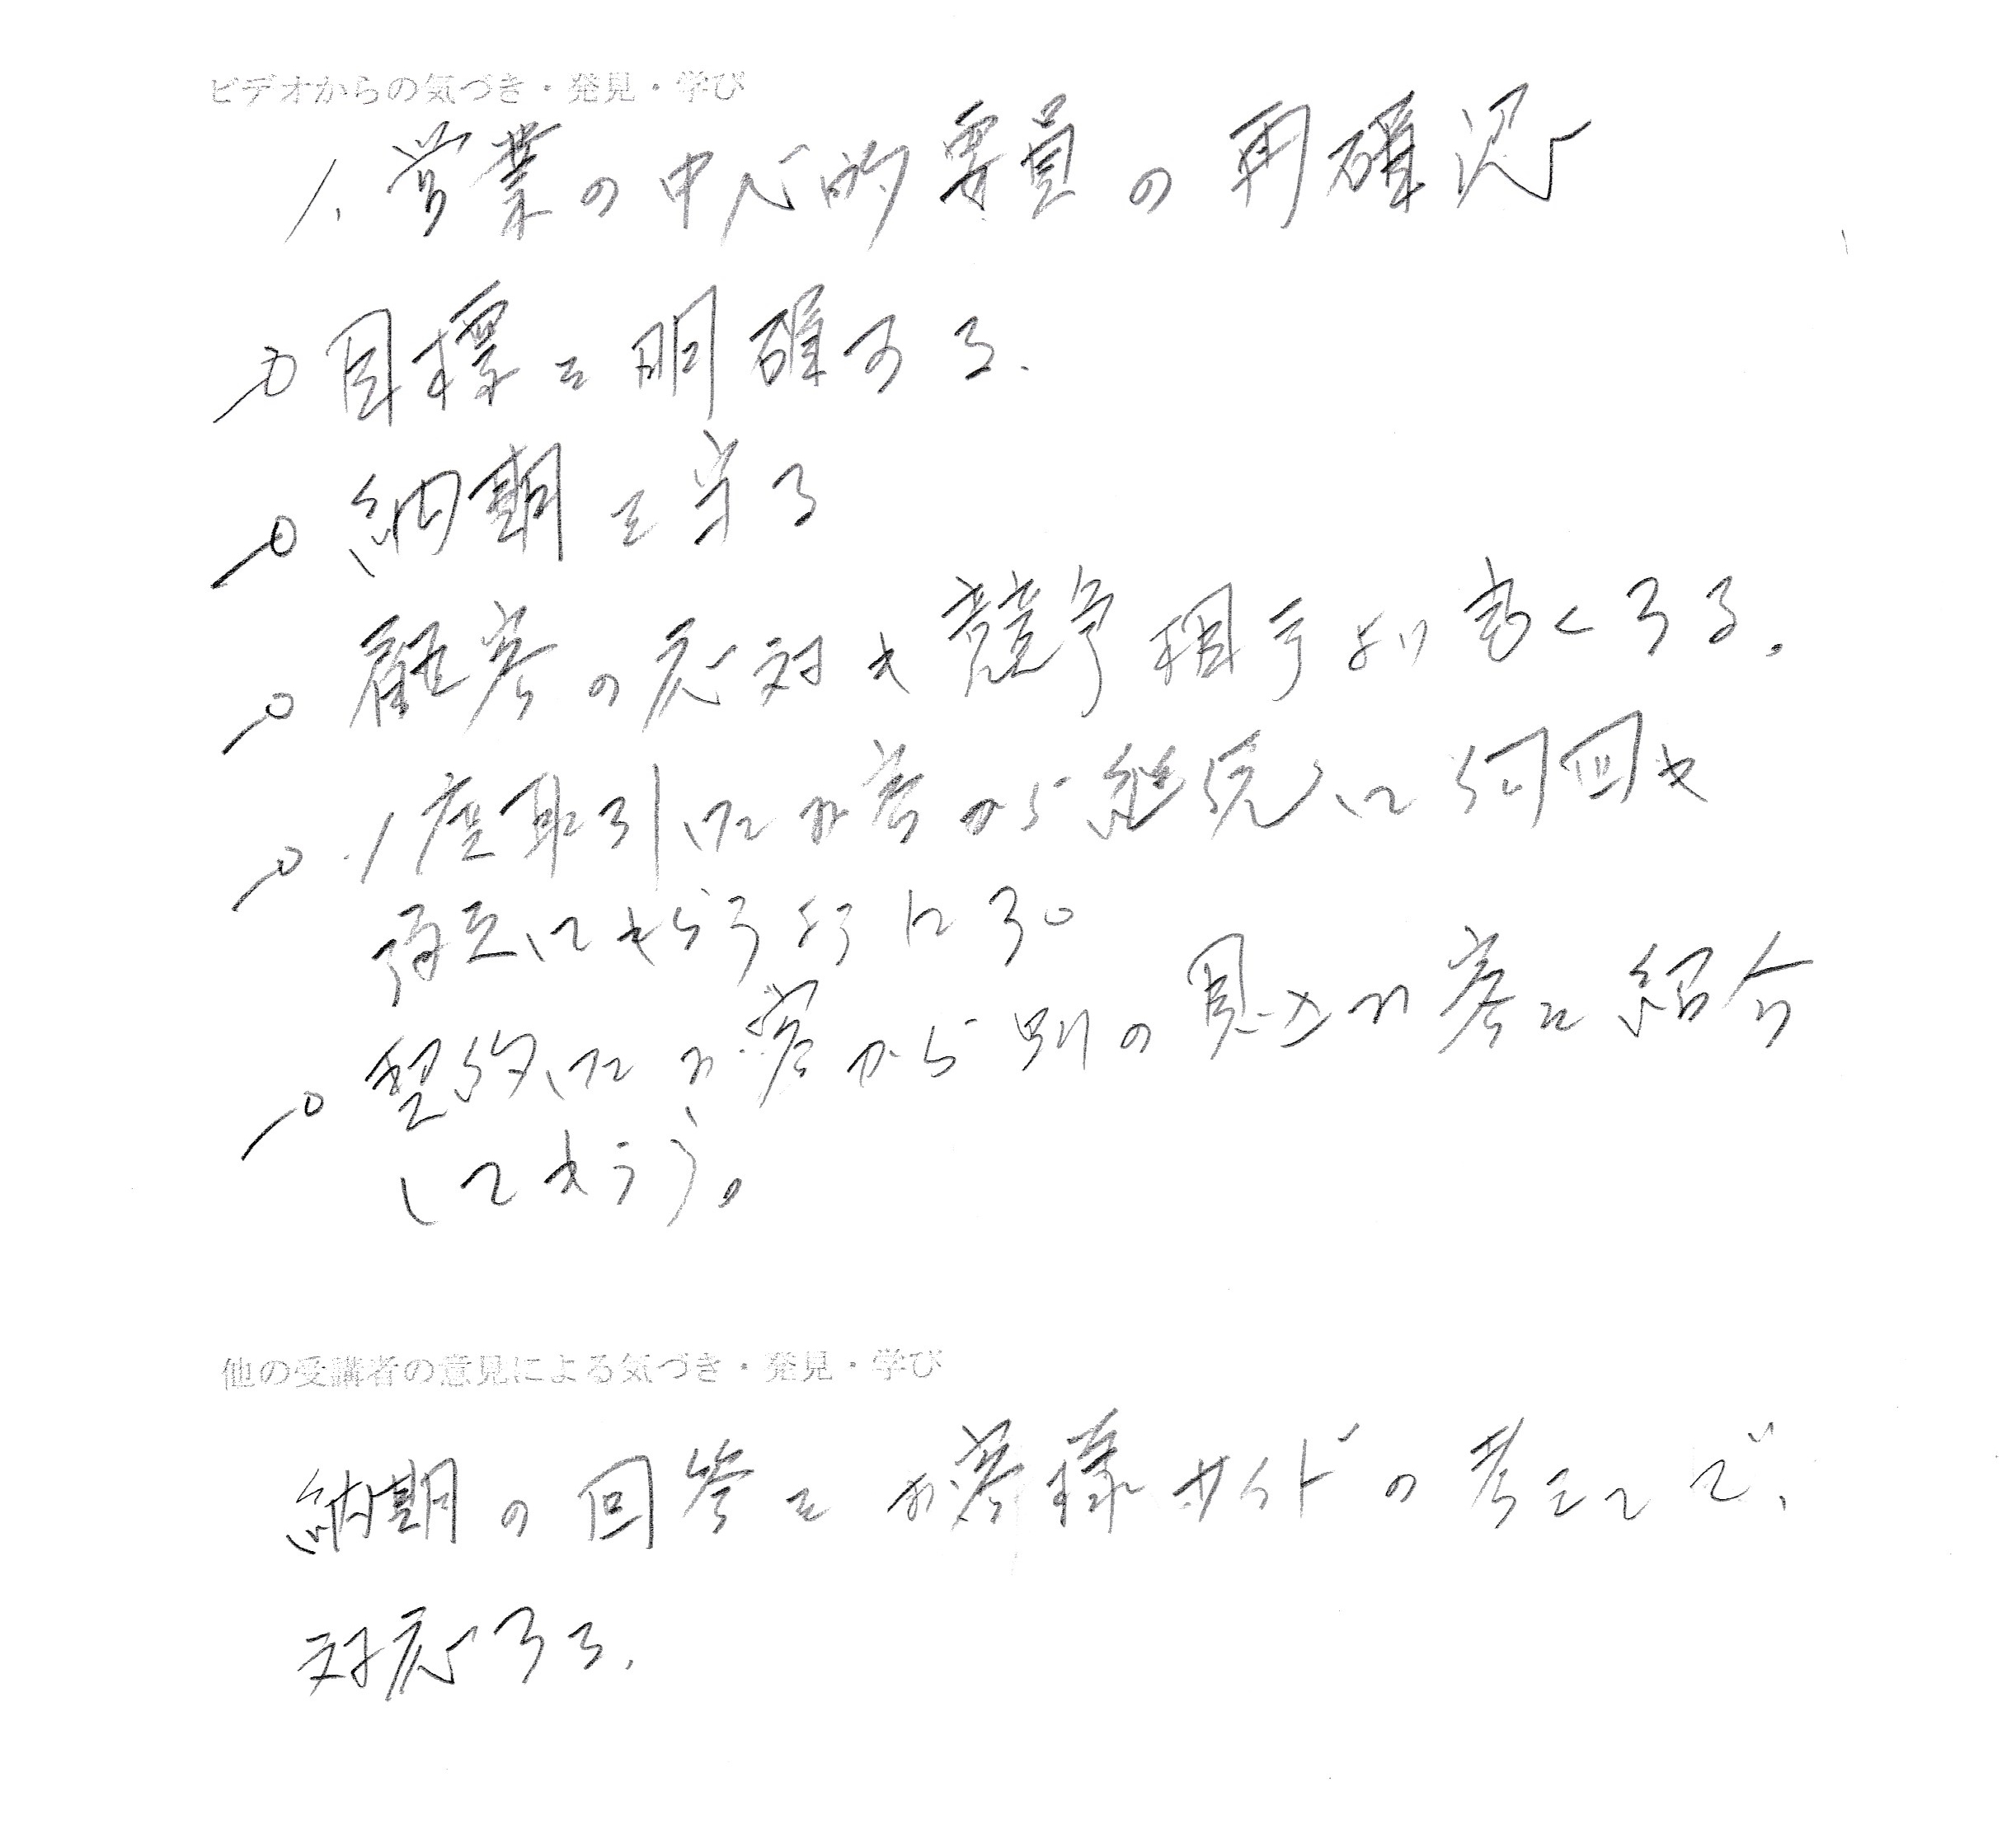 ビデオからの気づき・発見・学び
1. 営業の中心的要員の再確認
○ 目標を明確する.
○ 納期を守る
○ 顧客の応対も競争相手より良くする。
○ 1度取引したお客から継続して何回も
してもらうようにする
○ 契約したお客から別の見込み客を紹介
してもらう。
他の受講者の意見による気づき・発見・学び
納期の回答をお客様サイドの考えで、
対応する.